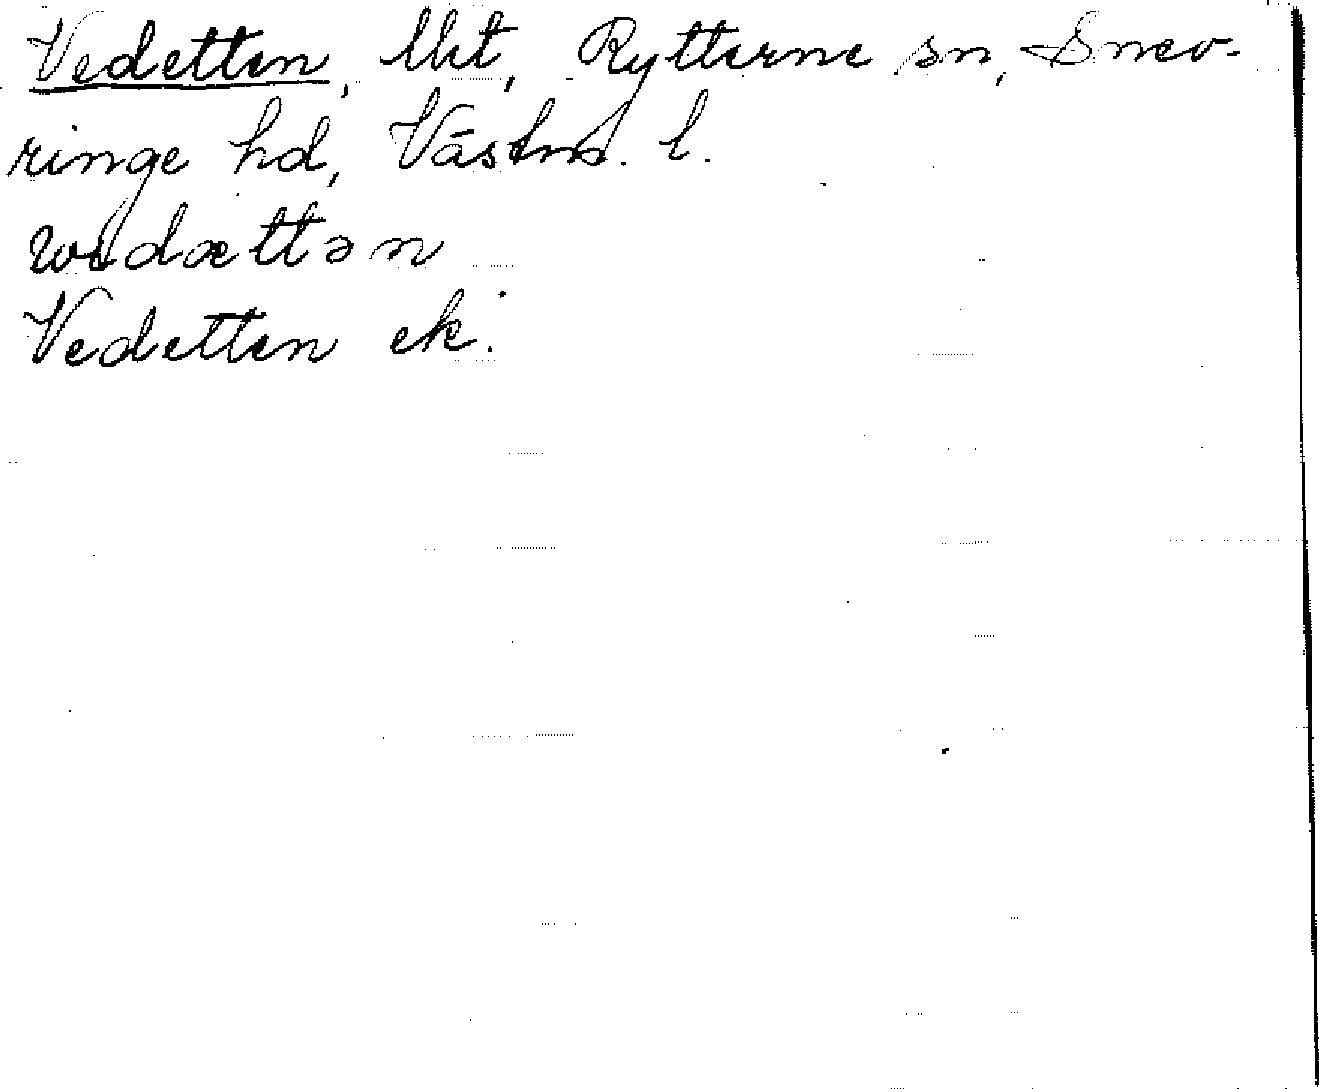 Vedetten, lht, Rytterne sn, Snev-
ringe hd, Västm. l.
vedættən
Vedetten ek.